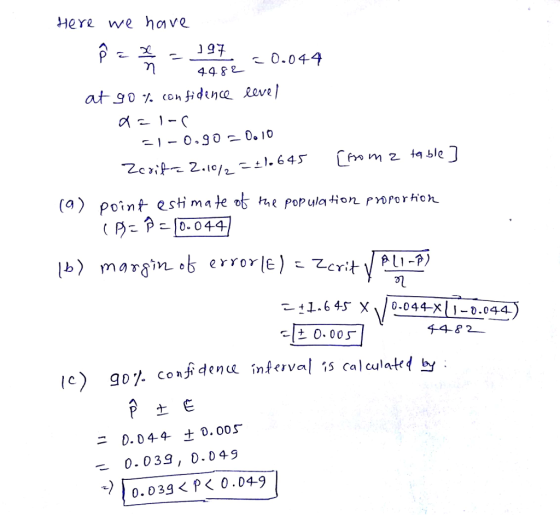 Here we have
p̂ = x/n = 197/4482 = 0.044
at 90 % confidence level
α = 1-C
= 1 - 0.90 = 0.10
Zcrit = Z.10/2 = ±1.645 [from z table]
(a) point estimate of the population proportion
(p) = p̂ = 0.044
(b) margin of error(E) = Zcrit √(p̂(1-p̂)/n)
= ±1.645 × √(0.044×(1-0.044)/4482)
= ± 0.005
(c) 90% confidence interval is calculated by :
p̂ ± E
= 0.044 ± 0.005
= 0.039, 0.049
=) 0.039 < P < 0.049